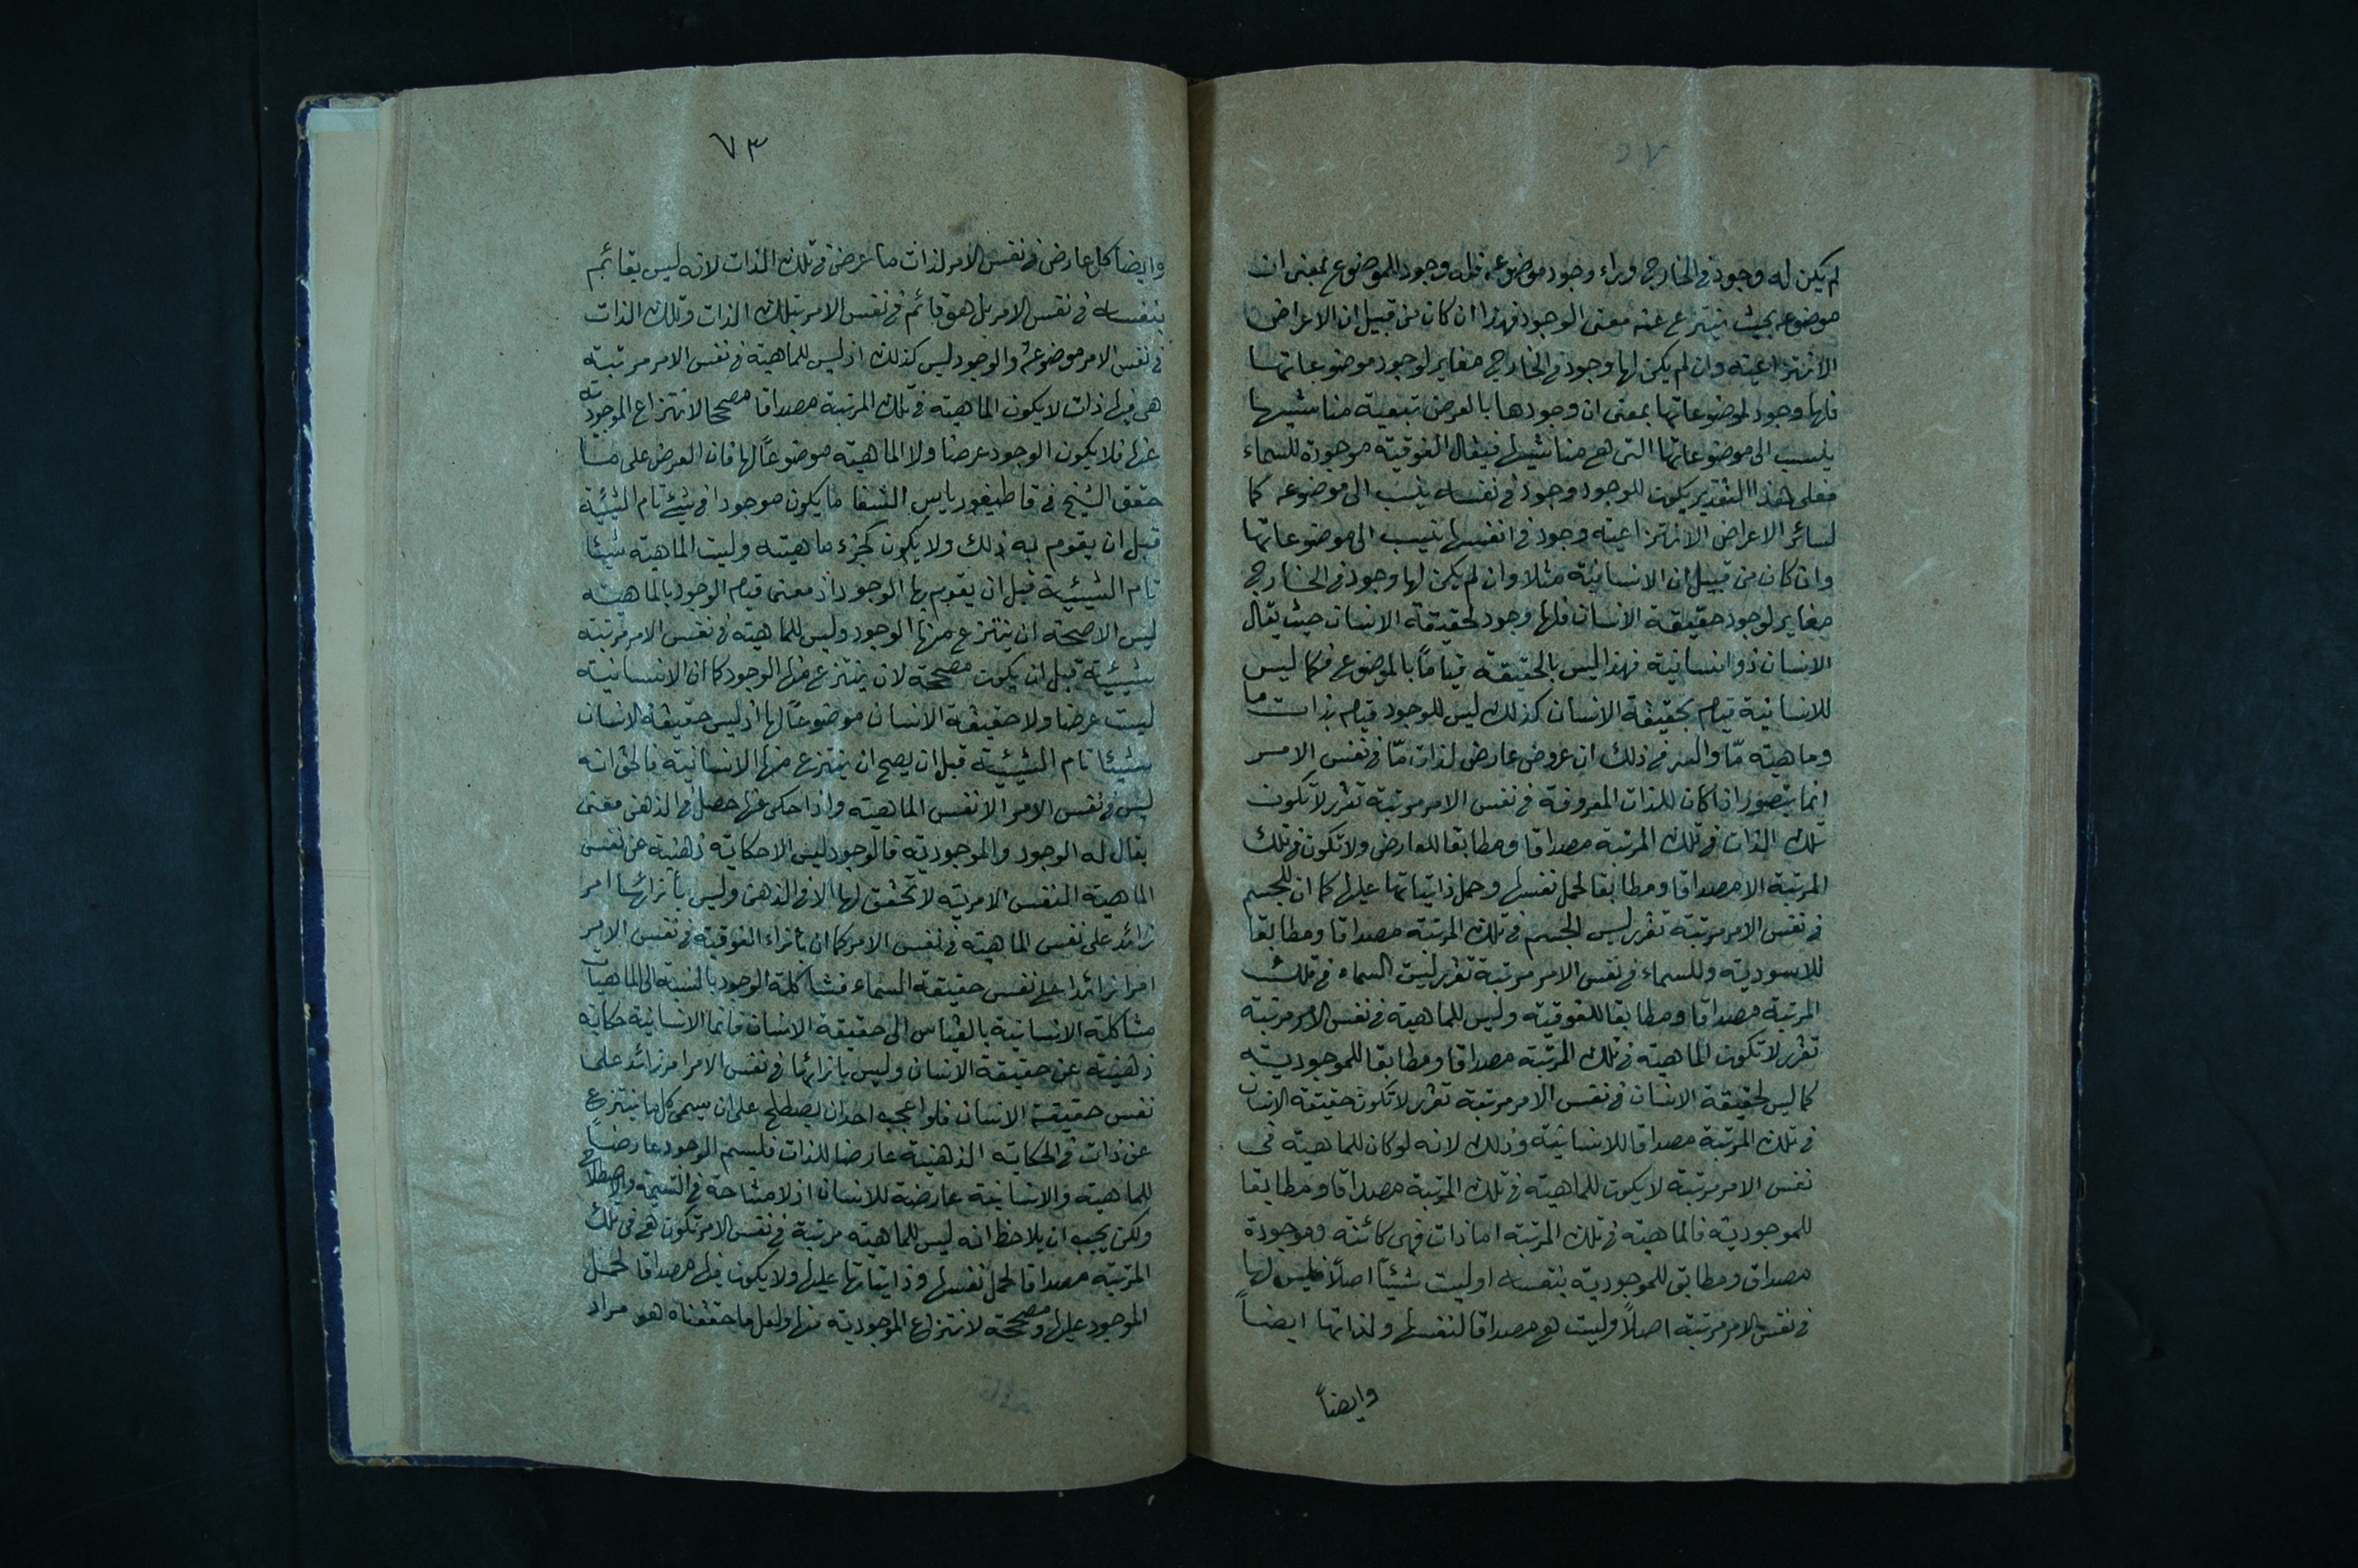 لم يكن له وجود في الخارج وراء وجود موضوعه فله وجود للموضوع بمعنى ان
موضوعه بحيث ينتزع عنه معنى الوجود فهذا ان كان من قبيل ان الاعراض
الانتزاعية وان لم يكن لها وجود في الخارج مغاير لوجود موضوعاتها
فلها وجود لموضوعاتها بمعنى ان وجودها بالعرض بتبعية مناشيها
ينسب الى موضوعاتها التى هى مناشيها فيقال الفوقية موجودة للسماء
فعلى هذا التقدير يكون للوجود وجود في نفسه ينسب الى موضوعه كما
لسائر الاعراض الانتزاعية وجود في انفسها ينسب الى موضوعاتها
وان كان من قبيل ان الانسانية مثلا وان لم يكن لها وجود في الخارج
مغاير لوجود حقيقة الانسان فلها وجود لحقيقة الانسان حيث يقال
الانسان ذو انسانية فهذا ليس بالحقيقة قياماً بالموضوع فكما ليس
للانسانية قيام بحقيقة الانسان كذلك ليس للوجود قيام بذات ما
وماهية مّا والسر في ذلك ان عروض عارض لذات مّا في نفس الامر
انما يتصور اذا كان للذات المعروضة في نفس الامر مرتبة تقرر لا تكون
تلك الذات في تلك المرتبة مصداقا ومطابقا للعارض ولا تكون في تلك
المرتبة الا مصداقا ومطابقا لحمل نفسها وحمل ذاتياتها عليها كما ان للجسم
في نفس الامر مرتبة تقرر ليس الجسم في تلك المرتبة مصداقا ومطابقا
للاسودية وللسماء في نفس الامر مرتبة تقرر ليس السماء في تلك
المرتبة مصداقا ومطابقا للفوقية وليس للماهية في نفس الامر مرتبة
تقرر لا تكون الماهية في تلك المرتبة مصداقا ومطابقا للموجودية
كما ليس لحقيقة الانسان في نفس الامر مرتبة تقرر لا تكون حقيقة الانسان
في تلك المرتبة مصداقا للانسانية وذلك لانه لو كان للماهية في
نفس الامر مرتبة لا يكون للماهية في تلك المرتبة مصداقا ومطابقا
للموجودية فالماهية في تلك المرتبة اما ذات فهى كائنة وموجودة
مصداق ومطابق للموجودية بنفسه او ليست شيئاً اصلاً فليس لها
في نفس الامر مرتبة اصلاً وليست هى مصداقا لنفسها ولذاتها ايضاً
وايضاً
٧٣
وايضا كل عارض في نفس الامر لذات ما عرض في تلك الذات لانه ليس بقائم
بنفسه في نفس الامر بل هو قائم في نفس الامر بتلك الذات وتلك الذات
في نفس الامر موضوعة والوجود ليس كذلك اذ ليس للماهية في نفس الامر مرتبة
هى فيها ذات لا يكون الماهية في تلك المرتبة مصداقا مصححا لانتزاع الموجودية
عنها فلا يكون الوجود عرضا ولا الماهية موضوعاً لها فان العرض على ما
حقق الشيخ في قاطيغورياس الشفا ما يكون موجودا في شيئ تام الشيئية
قبل ان يقوم به ذلك ولا يكون كجزء ماهيته وليست الماهية شيئا
تام الشيئية قبل ان يقوم بها الوجود اذ معنى قيام الوجود بالماهية
ليس الا صحة ان ينتزع منها الوجود وليس للماهية في نفس الامر مرتبة
شيئية قبل ان يكون مصححة لان ينتزع منها الوجود كما ان الانسانية
ليست عرضا ولا حقيقة الانسان موضوعاً لها اذ ليس حقيقة الانسان
شيئا تام الشيئية قبل ان يصح ان ينتزع منها الانسانية فالحق انه
ليس في نفس الامر الا نفس الماهية واذا حكى عنها حصل في الذهن معنى
يقال له الوجود والموجودية فالوجود ليس الا حكاية ذهنية عن نفس
الماهية النفس الامرية لا تحقق لها الا في الذهن وليس بازائها امر
زائد على نفس الماهية في نفس الامر كما ان بازاء الفوقية في نفس الامر
امرا زائدا على نفس حقيقة السماء فشاكلة الوجود بالنسبة الى الماهيات
مشاكلة الانسانية بالقياس الى حقيقة الانسان فانما الانسانية حكاية
ذهنية عن حقيقة الانسان وليس بازائها في نفس الامر امر زائد على
نفس حقيقة الانسان فلو اعجب احدا ان يصطلح على ان يسمى كل ما ينتزع
عن ذات في الحكاية الذهنية عارضا للذات فليسم الوجود عارضاً
للماهية والانسانية عارضة للانسان اذ لا مشاحة في التسمية والاصطلاح
ولكن يجب ان يلاحظ انه ليس للماهية مرتبة في نفس الامر تكون هى في تلك
المرتبة مصداقا لحمل نفسها وذاتياتها عليها ولا يكون فيها مصداقا لحمل
الموجود عليها ومصححة لانتزاع الموجودية منها ولعل ما حققناه هو مراد